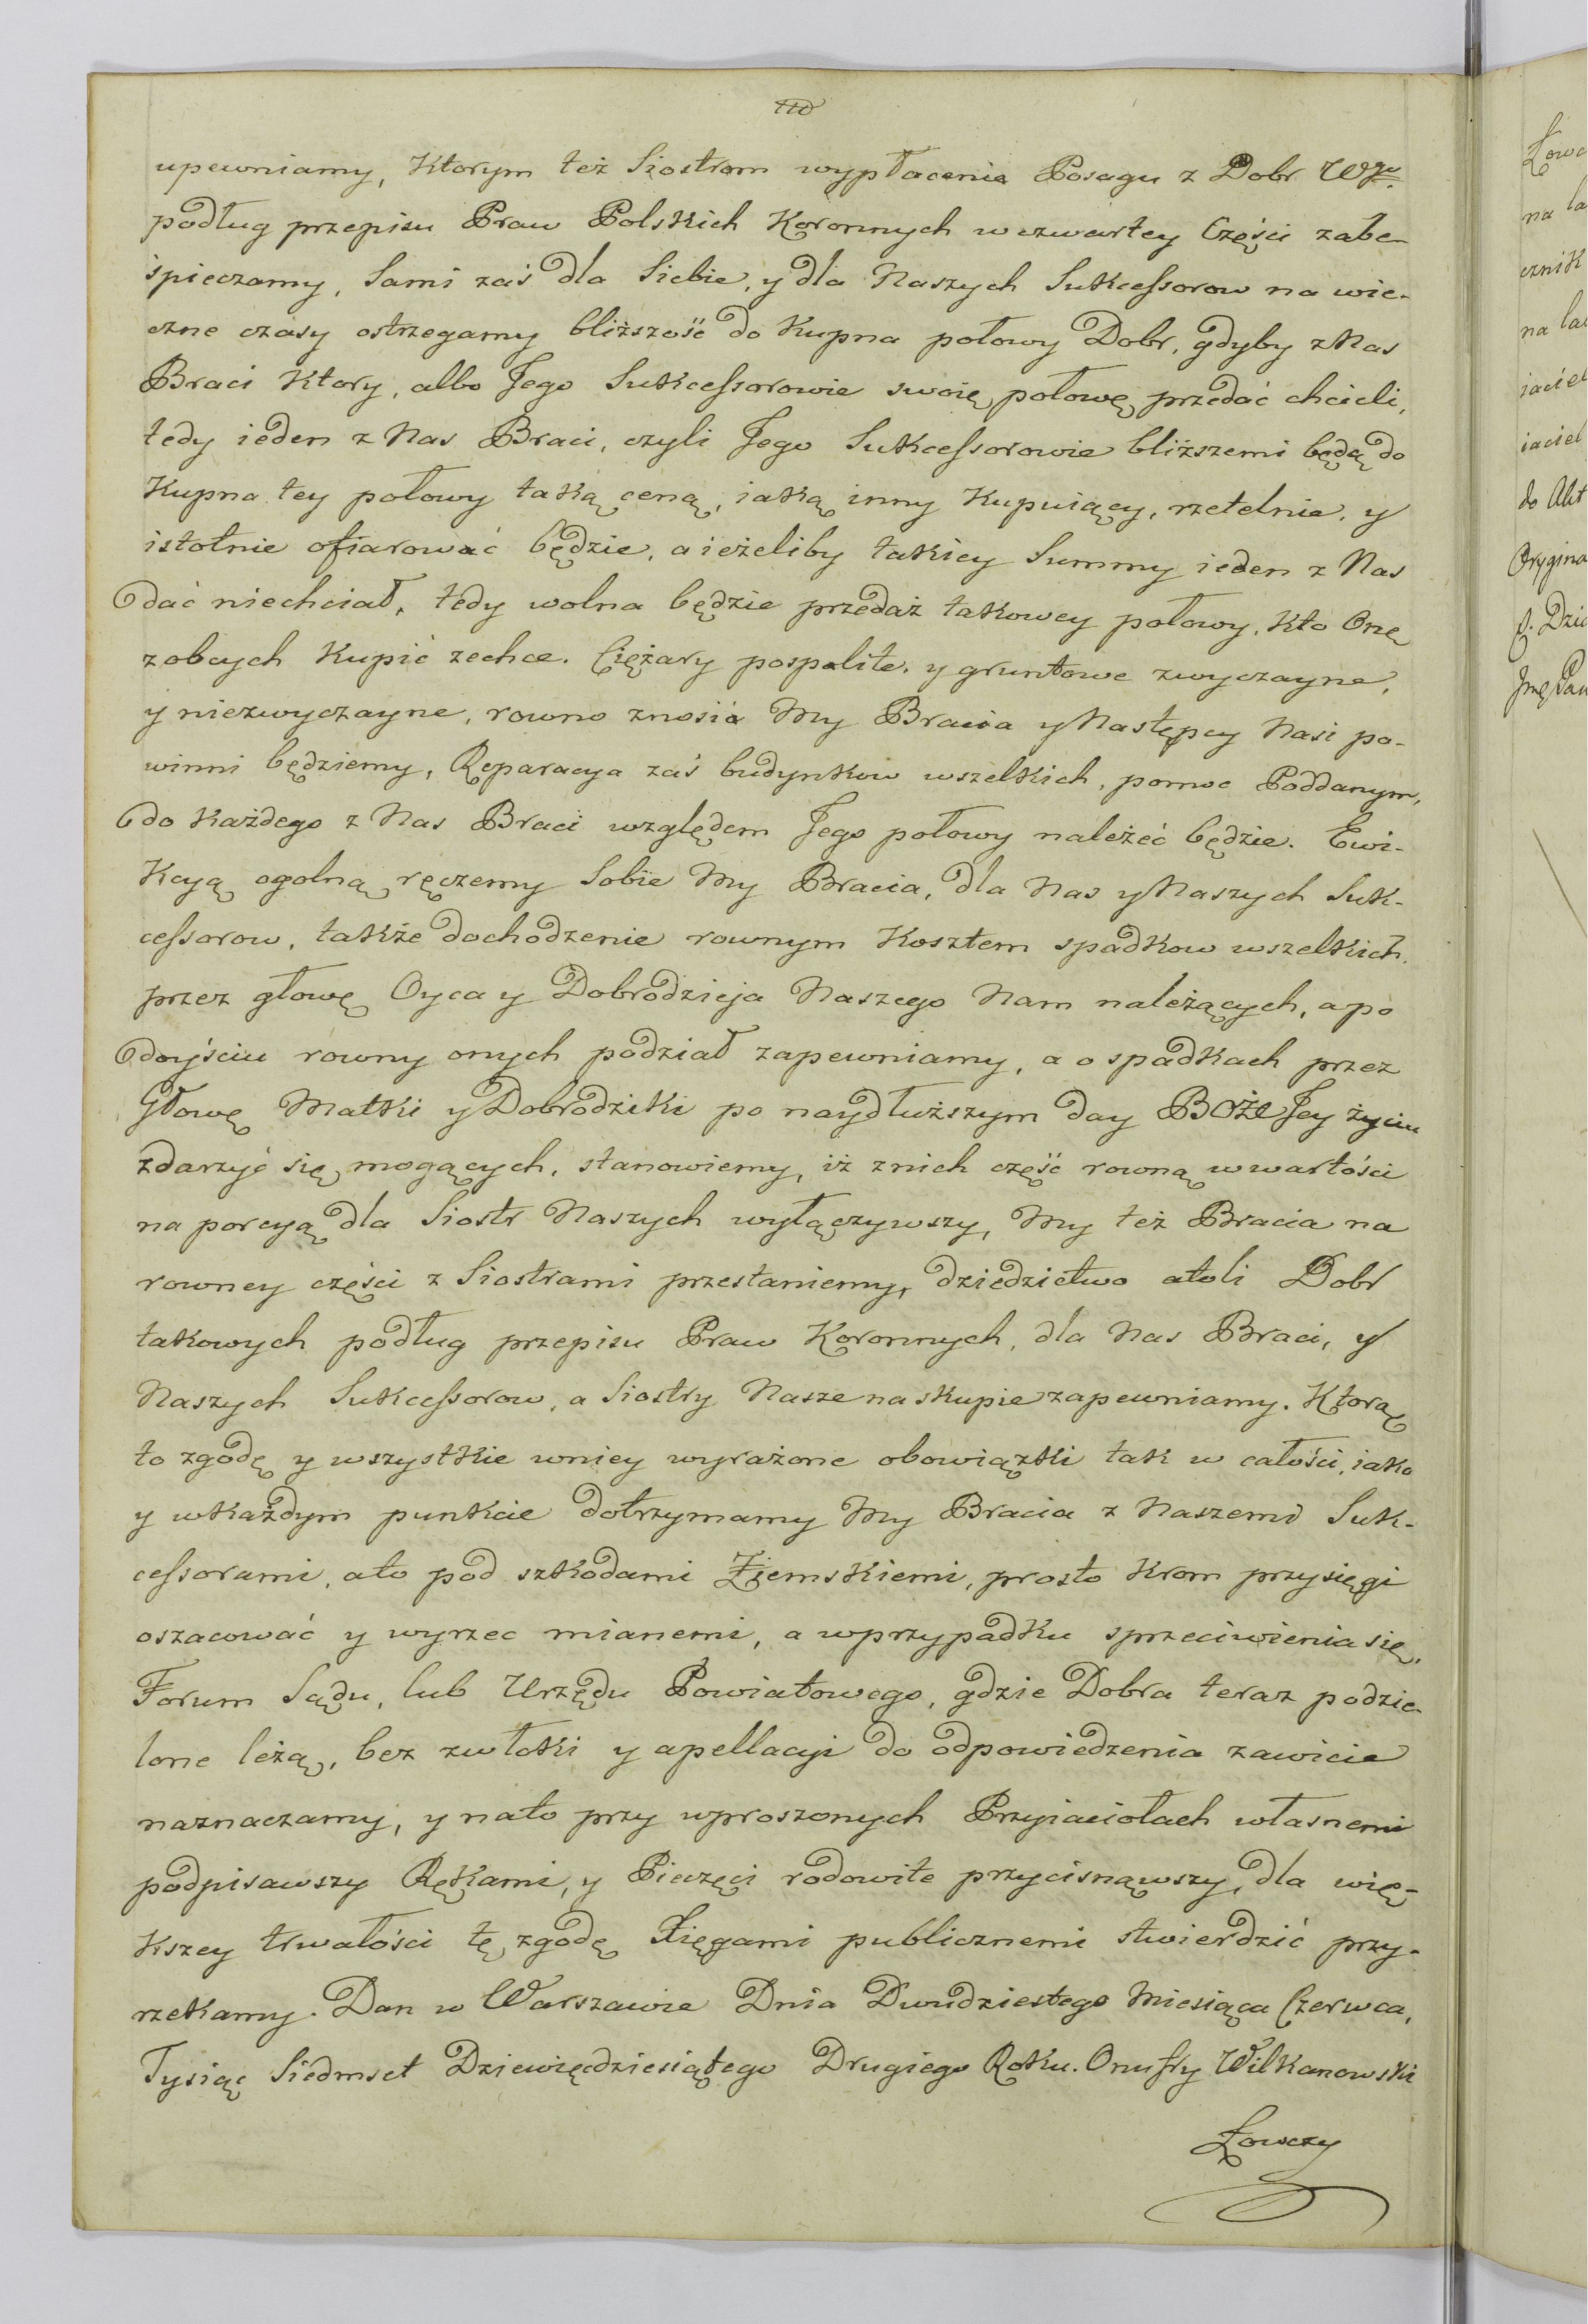 upewniamy, Ktorym też Siostrom wypłacenie Posagu z Dobr Wgo
podług przepisu Praw Polskich Koronnych w czwartey Części zabe-
śpieczamy, Sami zaś dla Siebie, y dla Naszych Sukcessorow na wie-
czne czasy ostrzegamy bliższość do Kupna połowy Dobr, gdyby z Nas
Braci Ktory, albo Jego Sukcessorowie swoię połowę przedać chcieli,
tedy ieden z Nas Braci, czyli Jego Sukcessorowie bliższemi będą do
Kupna tey połowy taką ceną, iaką inny Kupuiący, rzetelnie, y
istotnie ofiarować będzie, a ieżeliby takiey Summy ieden z Nas
dać niechciał, tedy wolna będzie przedaż takowey połowy, Kto Onę
z obcych Kupić zechce. Ciężary pospolite, y gruntowe zwyczayne,
y niezwyczayne, rowno znosić My Bracia y Następcy Nasi po-
winni będziemy, Reparacya zaś budynkow wszelkich, pomoc Poddanym,
do Każdego z Nas Braci względem Jego połowy należeć będzie. Ewi-
Kcyą ogolną ręczemy Sobie My Bracia, dla Nas y Naszych Suk-
cessorow, także dochodzenie rownym Kosztem spadkow wszelkich,
przez głowę Oyca y Dobrodzieja Naszego Nam należących, a po
doyściu rowny onych podział zapewniamy, a o spadkach przez
Głowę Matki y Dobrodziki po naydłuższym day BOŻE Jey życiu
zdarzyć się mogących, stanowiemy, iż z nich część rowną w wartości
na porcyą dla Siostr Naszych wyłączywszy, My też Bracia na
rowney części z Siostrami przestaniemy, dziedzictwo atoli Dobr
takowych podług przepisu Praw Koronnych, dla Nas Braci, y
Naszych Sukcessorow, a Siostry Nasze na skupie zapewniamy. Ktorą
to zgodę y wszystkie w niey wyrażone obowiązki tak w całości, iako
y w każdym punkcie dotrzymamy My Bracia z Naszemi Suk-
cessorami, a to pod szkodami Ziemskiemi, prosto Krom przysięgi
oszacować y wyrzec mianemi, a w przypadku sprzeciwienia się,
Forum Sądu, lub Urzędu Powiatowego, gdzie Dobra teraz podzie-
lone leżą, bez zwłoki y apellacyi do odpowiedzenia zawicie
naznaczamy, y na to przy uproszonych Przyiaciołach własnemi
podpisawszy Rękami, y Pieczęci rodowite przycisnąwszy, dla wię-
Kszey trwałości tę zgodę Xięgami publicznemi stwierdzić przy-
rzekamy. Dan w Warszawie Dnia Dwudziestego Miesiąca Czerwca,
Tysiąc Siedmset Dziewięćdziesiątego Drugiego Roku. Onufry Wilkanowski
Łowczy
na la
cznik
iaciel
iaciel
Orygina